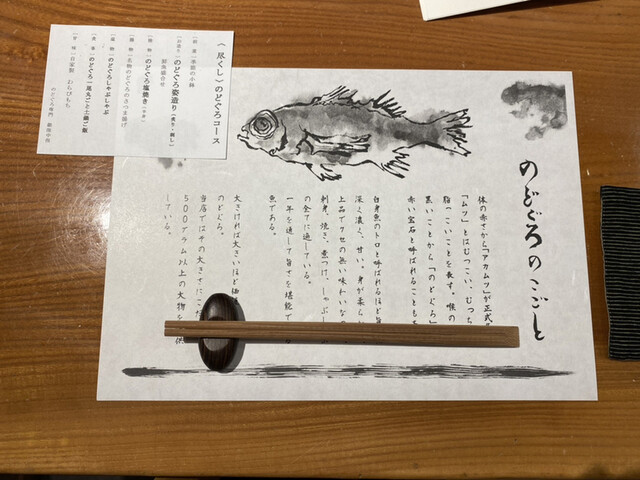 〈尽くし〉のどぐろコース
［前菜］季節の小鉢
のどぐろ姿造り（炙り・刺し）
鮮魚盛合せ
［焼物］のどぐろ塩焼き
［揚物］名物のどぐろのさつま揚げ
［鍋物］のどぐろしゃぶしゃぶ
［食事］のどぐろ一尾丸ごと土鍋ご飯
［甘味］自家製 わらびもち
のどぐろ専門 銀座中俣
のどぐろのこごと
体の赤さから「アカムツ」が正式
「ムツ」とはむつこい、むっち
脂っこいことを表す。喉の
黒いことから「のどぐろ」
赤い宝石と呼ばれることも
白身魚のトロと呼ばれるほど
深く濃く、甘い。身が柔ら
上品でクセの無い味わいな
刺身、焼き、煮つけ、しゃぶし
の全てに適している。
一年を通して旨さを堪能で
魚である。
大きければ大きいほど
のどぐろ。
当店ではその大きさにこ
500グラム以上の大物を 供
している。